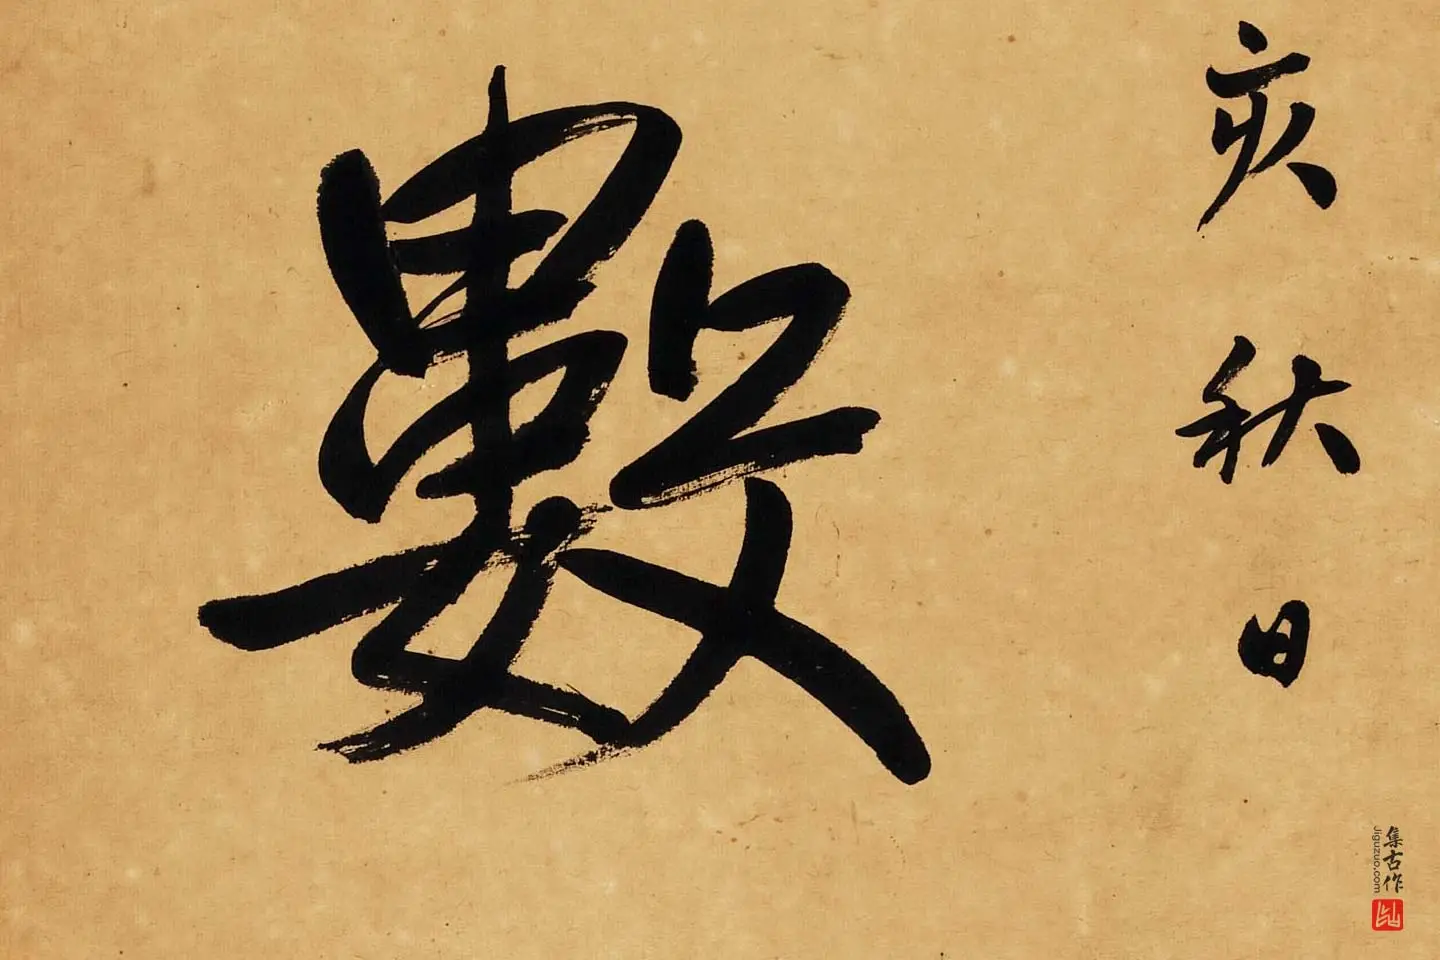 亥秋日
數
集古作
Jiguzuo.com